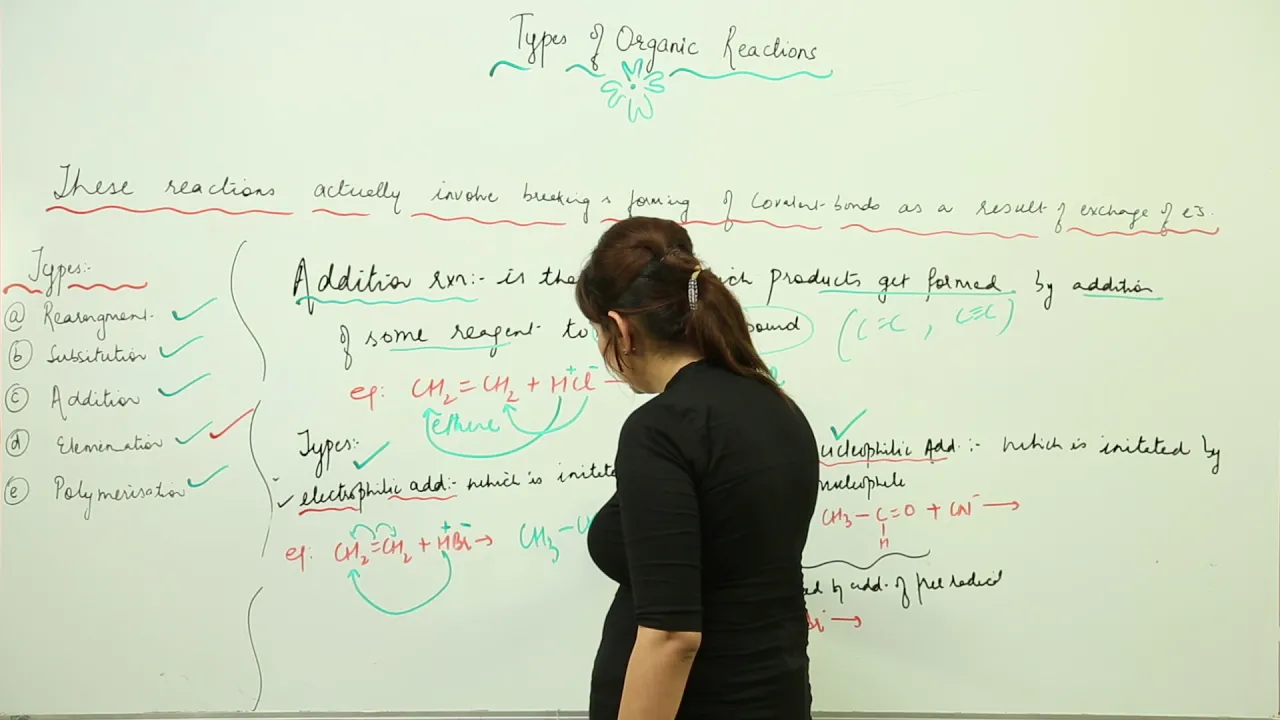 Types of Organic Reactions
These reactions actually involve breaking & forming of covalent bonds as a result of exchange of es.
Types:-
(a) Rearrangment
(b) Subsitution
(c) Addition
(d) Elemenation
(e) Polymerisation
Addition rxn:- is the ich products get formed by addition
of some reagent to ound (C=C, C≡C)
eg: CH2 = CH2 + H+Cl- →
ethene
Types:
electrophilic add:- which is initate
eg: CH2=CH2 + H+Br- → CH3 - C
ucleophilic Add:- which is initated by
nucleophile
CH3 - C = O + CN- →
H
ed by add. of free radical
Br →